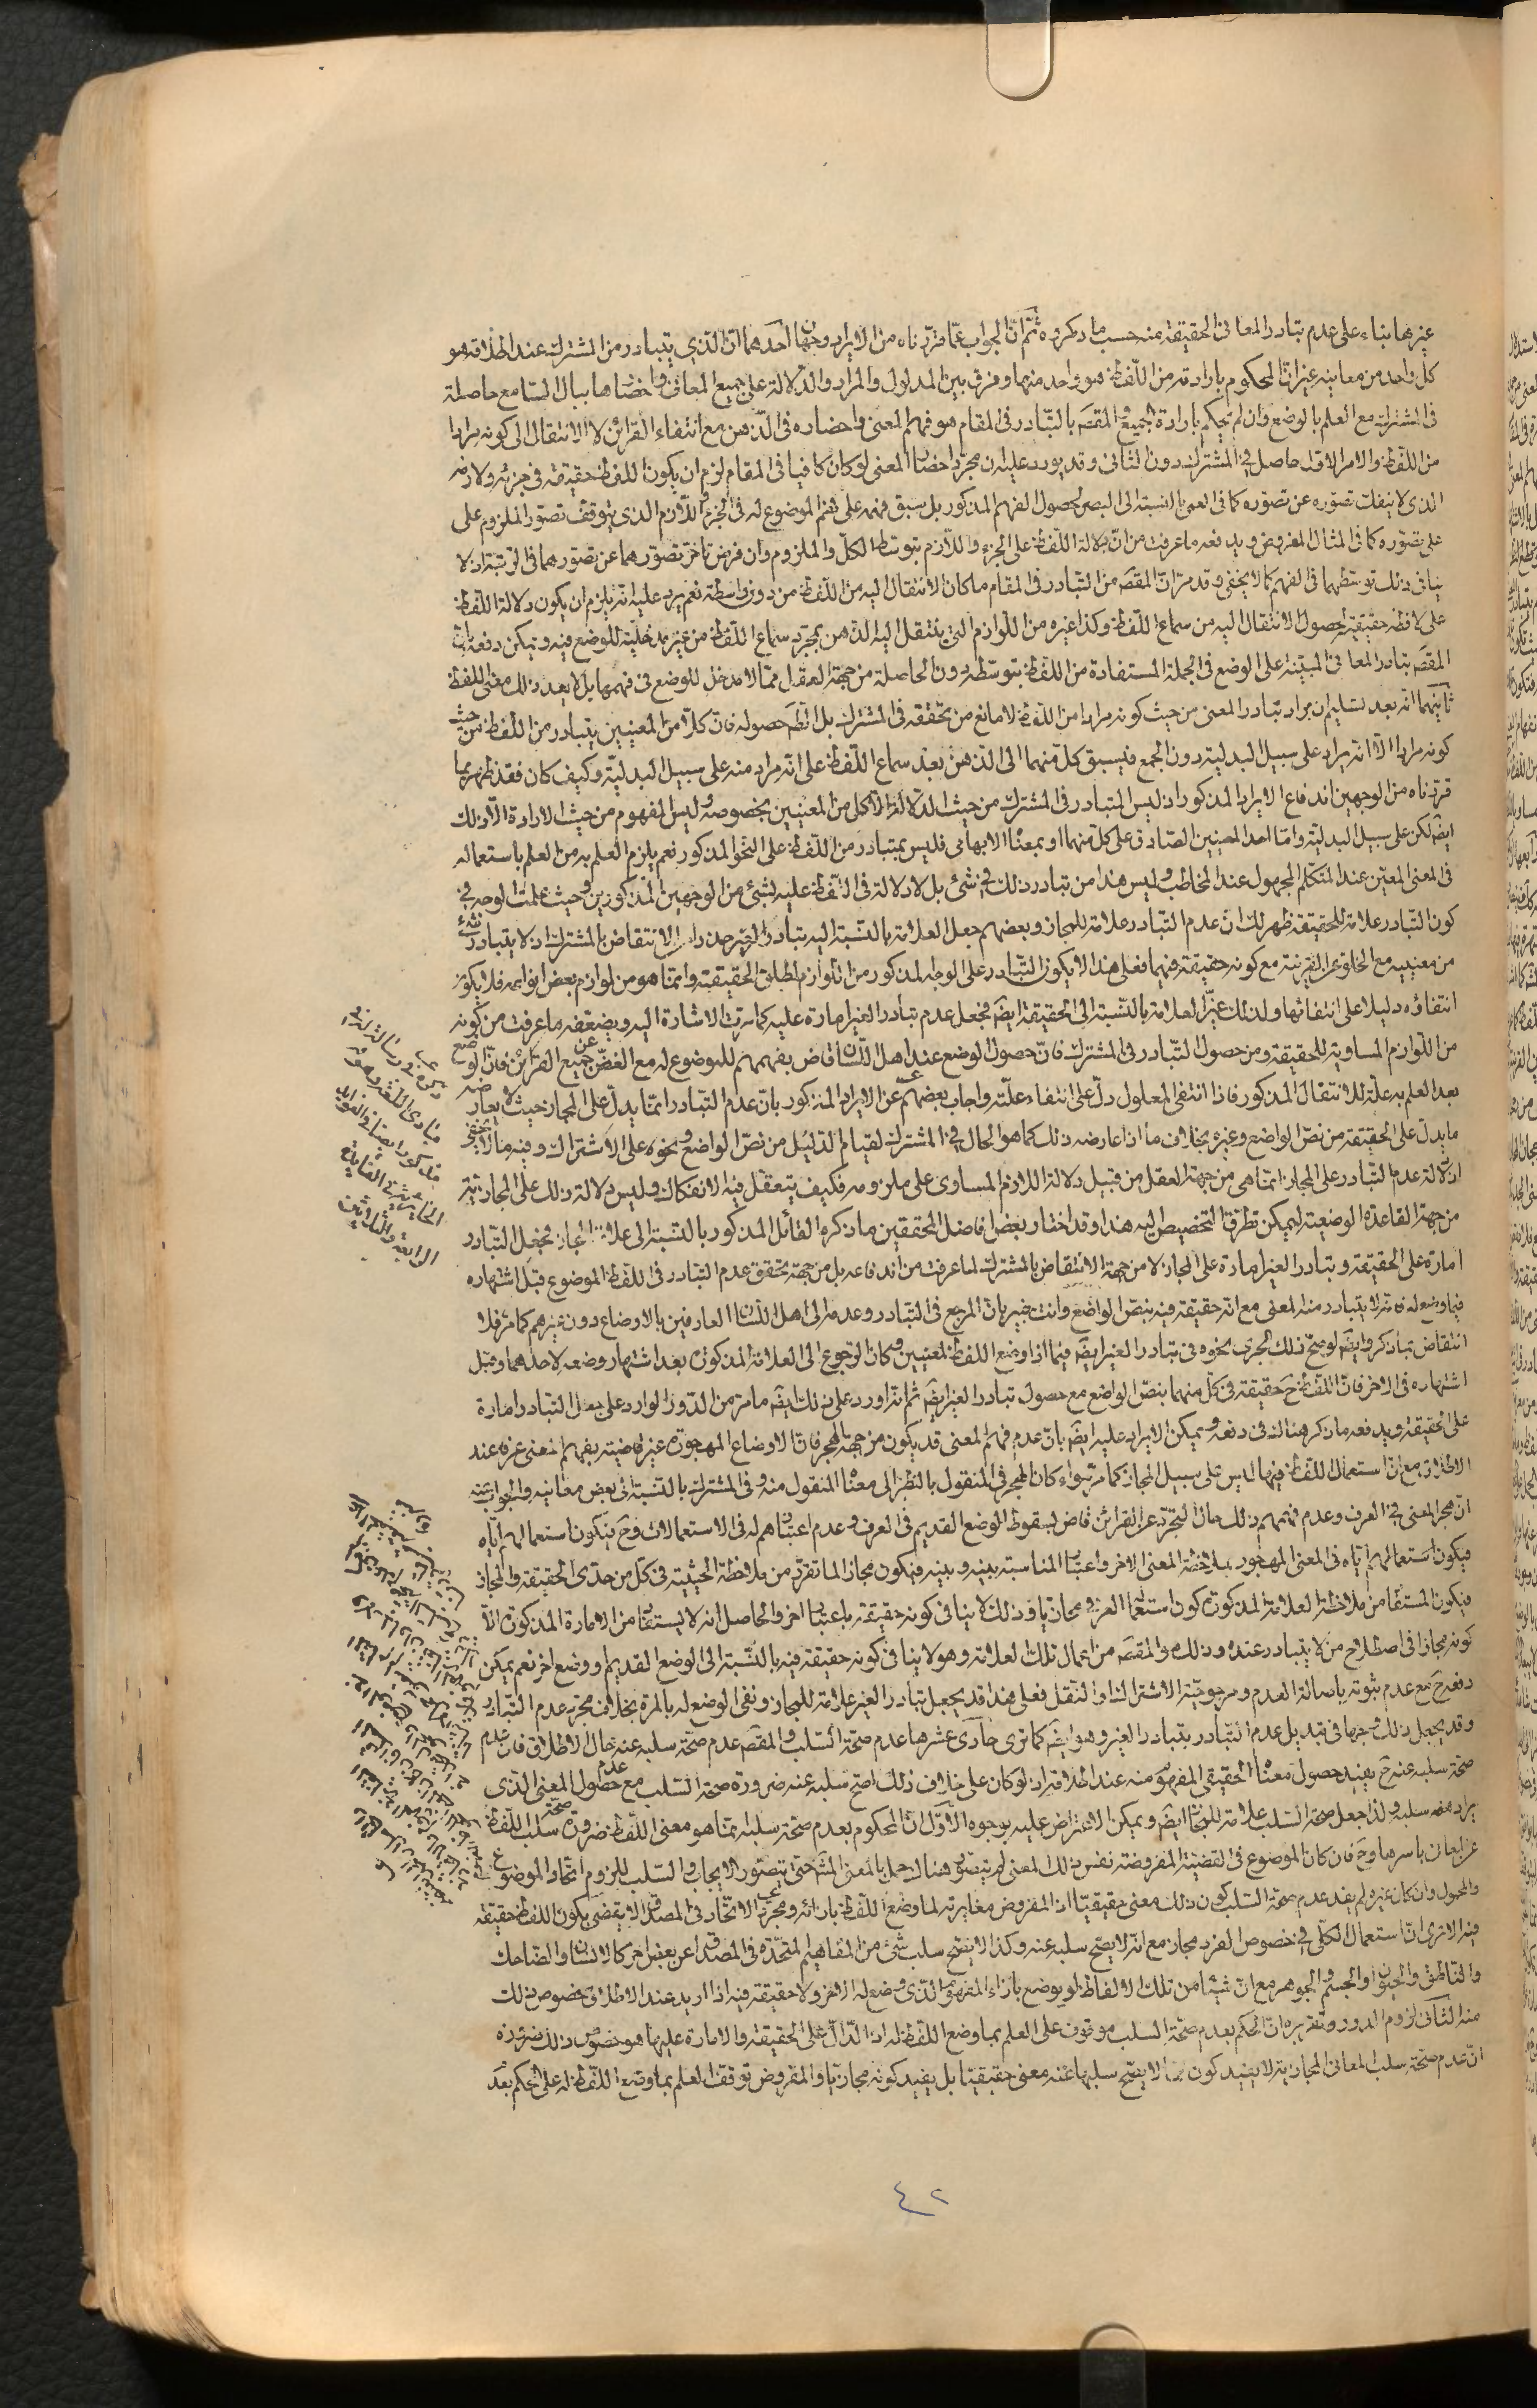 غيرها بناء على عدم تبادر المعانى الحقيقية منه حسب ما ذكروه ثم ان الجواب عما قررناه من الايراد وجهان احدهما ان الذى يتبادر من المشترك عند اطلاقه هو
كل واحد من معانيه غير ان المحكوم بارادته من اللفظ هو واحد منهما وفرق بين المدلول والمراد والدلالة على جميع المعانى واحضارها ببال السامع حاصلة
فى المشترك مع العلم بالوضع وان لم يحكم بارادة الجميع والمقصَ بالتبادر فى المقام هو فهم المعنى واحضاره فى الذهن مع انتفاء القرائن لا الانتقال الى كونه مرادا
من اللفظ والامر الاول حاصل فى المشترك دون الثانى وقد يورد عليه ان مجرد احضار المعنى لو كان كافيا فى المقام لزم ان يكون اللفظ حقيقة فى جزئه ولازمه
الذى لا ينفك تصوره عن تصوره كما فى العمى بالنسبة الى البصر لحصول الفهم المذكور بل سبق فهمه على فهم الموضوع له فى الجزء واللازم الذى يتوقف تصور الملزوم على
على تصوره كما فى المثال المفروض ويدفعه ما عرفت من ان دلالة اللفظ على الجزء واللازم بتوسط الكل والملزوم وان فرض تاخر تصورهما عن تصورهما فى الرتبة اذ لا
ينافى ذلك توسطهما فى الفهم كما لا يخفى وقد مر ان المقصَ من التبادر فى المقام ما كان الانتقال اليه من اللفظ من دون واسطة نعم يرد عليه انه يلزم ان يكون دلالة اللفظ
على لافظه حقيقية لحصول الانتقال اليه من سماع اللفظ وكذا غيره من اللوازم التى ينتقل اليه الذهن بمجرد سماع اللفظ من غير مدخلية للوضع فيه ويمكن دفعه بان
المقصَ تبادر المعانى المبتنية على الوضع فى الجملة المستفادة من اللفظ بتوسطه دون الحاصلة من جهة العقل مما لا مدخل للوضع فى فهمها بل لا يعد ذلك معنى اللفظ
ثانيهما انه بعد تسليم ان يراد تبادر المعنى من حيث كونه مرادا من اللفظ لا مانع من تحققه فى المشترك بل الظَ حصوله فان كلا من المعنيين يتبادر من اللفظ من حيث
كونه مرادا الا انه يراد على سبيل البدلية دون الجمع فيسبق كل منهما الى الذهن بعد سماع اللفظ على انه مراد منه على سبيل البدلية وكيف كان فقد ظهر بما
قررناه من الوجهين اندفاع الايراد المذكور اذ ليس المتبادر فى المشترك من حيث الدلالة الا كل من المعنيين بخصوصه وليس المفهوم من حيث الارادة الا ذلك
ايضَ لكن على سبيل البدلية واما احد المعنيين الصادق على كل منهما او بمعناه الابهامى فليس بمتبادر من اللفظ على النحو المذكور نعم يلزم العلم به من العلم باستعماله
فى المعنى المعين عند المتكلم المجهول عند المخاطب وليس هذا من تبادر ذلك فى شئ بل لا دلالة فى اللفظ عليه لشئ من الوجهين المذكورين وحيث علمت الوجه فى
كون التبادر علامة للحقيقة ظهر لك ان عدم التبادر علامة للمجاز وبعضهم جعل العلامة بالنسبة اليه تبادر الغير حذرا من الانتقاض بالمشترك اذ لا يتبادر شئ
من معنييه مع الخلو عن القرينة مع كونه حقيقة فيهما فعلى هذا لا يكون التبادر على الوجه المذكور من اللوازم لمطلق الحقيقة وانما هو من لوازم بعض انواعه فلا يكون
انتفاؤه دليلا على انتفائها ولذلك غير العلامة بالنسبة الى الحقيقة ايضَ فجعل عدم تبادر الغير امارة عليه كما مرت الاشارة اليه ويضعفه ما عرفت من كونه
من اللوازم المساوية للحقيقة ومن حصول التبادر فى المشترك فان حصول الوضع عند اهل اللسان قاض بفهمهم للموضوع له مع الغض عن جميع القرائن فان الوضع
بعد العلم به علة للانتقال المذكور فاذا انتفى المعلول دل على انتفاء علته واجاب بعضهم عن الايراد المذكور بان عدم التبادر انما يدل على المجاز حيث لا يعارضه
ما يدل على الحقيقة من نص الواضع وغيره بخلاف ما اذا عارضه ذلك كما هو الحال فى المشترك لقيام الدليل من نص الواضع ونحوه على الاشتراك وفيه ما لا يخفى
اذ دلالة عدم التبادر على المجاز انما هى من جهة العقل من قبيل دلالة اللازم المساوى على ملزومه فكيف يتعقل فيه الانفكاك وليس دلالة ذلك على المجازية
من جهة القاعدة الوضعية ليمكن تطرق التخصيص اليه هذا وقد اختار بعض افاضل المحققين ما ذكره القائل المذكور بالنسبة الى علامة المجاز فجعل التبادر
امارة على الحقيقة وتبادر الغير امارة على المجاز لا من جهة الانتقاض بالمشترك لما عرفت من اندفاعه بل من جهة تحقق عدم التبادر فى اللفظ الموضوع قبل اشتهاره
فيما وضع له فانه لا يتبادر منه المعنى مع انه حقيقة فيه بنص الواضع وانت خبير بان المرجع فى التبادر وعدمه الى اهل اللسان العارفين بالاوضاع دون غيرهم كما مر فلا
انتقاض بما ذكره وايضَ لو صح ذلك لجرى نحوه فى تبادر الغير ايضَ فيما اذا وضع اللفظ لمعنيين وكان الرجوع الى العلامة المذكورة بعد اشتهار وضعه لاحدهما وقبل
اشتهاره فى الاخر فان اللفظ حَ حقيقة فى كل منهما بنص الواضع مع حصول تبادر الغير ايضَ ثم انه اورد على ذلك ايضَ ما مر من الدور الوارد على جعل التبادر امارة
على الحقيقة ويدفعه ما ذكر هنالك فى دفعه ويمكن الايراد عليه ايضَ بان عدم فهم المعنى قد يكون من جهة الهجر فان الاوضاع المهجورة غير قاضية بفهم المعنى عرفا عند
الاطلاق مع ان استعمال اللفظ فيها ليس على سبيل المجاز كما مر سواء كان الهجر فى المنقول بالنظر الى معناه المنقول منه وفى المشترك بالنسبة الى بعض معانيه والجواب عنه
ان هجر المعنى فى العرف وعدم فهمهم ذلك حال التجرد عن القرائن قاض بسقوط الوضع القديم فى العرف وعدم اعتبارهم له فى الاستعمالات وحَ يكون استعمالهم اياه
فيكون استعمالهم اياه فى المعنى المهجور بملاحظة المعنى الاخر واعتبار المناسبة بينه وبينه فيكون مجازا لما تقرر من ملاحظة الحيثية فى كل من حدى الحقيقة والمجاز
فيكون المستفاد من ملاحظة العلامة المذكورة كون استعماله العرفى مجازيا وذلك لا ينافى كونه حقيقة باعتبار اخر والحاصل انه لا يستفاد من الامارة المذكورة الا
كونه مجازا فى اصطلاح من لا يتبادر عنده وذلك هو المقصَ من اعمال تلك العلامة وهو لا ينافى كونه حقيقة فيه بالنسبة الى الوضع القديم او وضع اخر نعم يمكن
دفعه حَ مع عدم ثبوته باصالة العدم ومرجوحية الاشتراك والنقل فعلى هذا قد يجعل تبادر الغير علامة للمجاز ونفى الوضع له بالمرة بخلاف مجرد عدم التبادر
وقد يجعل ذلك وجها فى تبديل عدم التبادر بتبادر الغير وهو ايضَ كما ترى حادى عشرها عدم صحة السلب والمقصَ عدم صحة سلبه عنه حال الاطلاق فان عدم
صحة سلبه عنه حَ يفيد حصول معناه الحقيقى المفهوم منه عند اطلاقه اذ لو كان على خلاف ذلك لصح سلبه عنه ضرورة صحة السلب مع عدم حصول المعنى الذى
يراد منه سلبه ولذا جعل صحة السلب علامة للمجاز ايضَ ويمكن الاعتراض عليه بوجوه الاول ان المحكوم بعدم صحة سلبه انما هو معنى اللفظ ضرورة صحة سلب اللفظ
عن المعانى باسرها وحَ فان كان الموضوع فى القضية المفروضة نفس ذلك المعنى لم يتصور هناك حمل بالمعنى المشَ حتى يتصور الايجاب والسلب للزوم اتحاد الموضوع
والمحمول وان كان غيره لم يفد عدم صحة السلب كون ذلك معنى حقيقيا اذ المفروض مغايرته لما وضع اللفظ بازائه ومجرد الاتحاد فى المصداق لا يقضى بكون اللفظ حقيقة
فيه الا ترى ان استعمال الكلى فى خصوص الفرد مجاز مع انه لا يصح سلبه عنه وكذا لا يصح سلب شئ من المفاهيم المتحدة فى المصداق عن بعض اخر كالانسان والضاحك
والناطق والحيوان والجسم والجوهر مع ان شيئا من تلك الالفاظ لم يوضع بازاء المفهوم الذى وضع له الاخر ولا حقيقة فيه اذا اريد عند الاطلاق خصوص ذلك
منه الثانى لزوم الدور وتقريره ان الحكم بعدم صحة السلب موقوف على العلم بما وضع اللفظ له اذ الدال على الحقيقة والامارة عليها هو خصوص ذلك ضرورة
ان عدم صحة سلب المعانى المجازية لا يفيد كون ما لا يصح سلبها عنه معنى حقيقيا بل يفيد كونه مجازيا والمفروض توقف العلم بما وضع اللفظ له على الحكم بعدم
٤٢